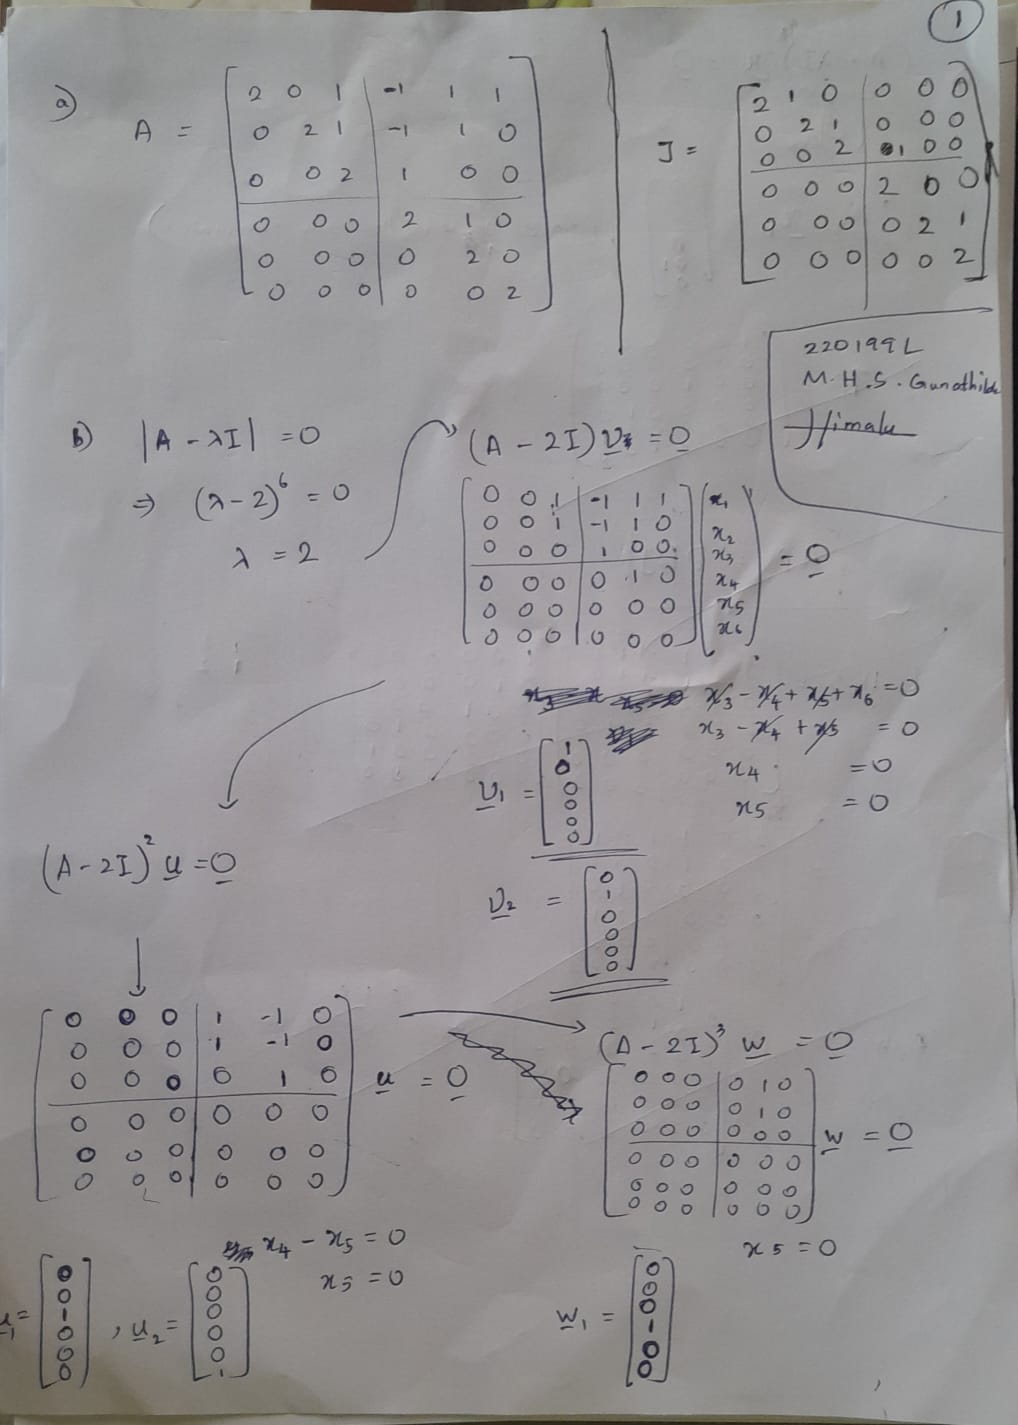 1
a)
A =
2 0 1 -1 1 1
0 2 1 -1 1 0
0 0 2 1 0 0
0 0 0 2 1 0
0 0 0 0 2 0
0 0 0 0 0 2
J =
2 1 0 0 0 0
0 2 1 0 0 0
0 0 2 1 0 0
0 0 0 2 0 0
0 0 0 0 2 1
0 0 0 0 0 2
220199L
M.H.S. Gunathilake
Himalu
b) |A - λI| = 0
⇒ (λ-2)⁶ = 0
λ = 2
(A - 2I) v = 0
0 0 1 -1 1 1 x₁
0 0 1 -1 1 0 x₂
0 0 0 1 0 0 x₃
0 0 0 0 1 0 x₄
0 0 0 0 0 0 x₅
0 0 0 0 0 0 x₆
= 0
x₃ - x₄ + x₅ + x₆ = 0
x₃ - x₄ + x₅ = 0
x₄ = 0
x₅ = 0
v₁ =
1
0
0
0
0
0
v₂ =
0
1
0
0
0
0
(A - 2I)² u = 0
0 0 0 1 -1 0
0 0 0 1 -1 0
0 0 0 0 1 0
0 0 0 0 0 0
0 0 0 0 0 0
0 0 0 0 0 0
u = 0
x₄ - x₅ = 0
x₅ = 0
u₁ =
0
0
1
0
0
0
, u₂ =
0
0
0
0
0
1
(A - 2I)³ w = 0
0 0 0 0 1 0
0 0 0 0 1 0
0 0 0 0 0 0
0 0 0 0 0 0
0 0 0 0 0 0
0 0 0 0 0 0
w = 0
x₅ = 0
w₁ =
0
0
0
1
0
0